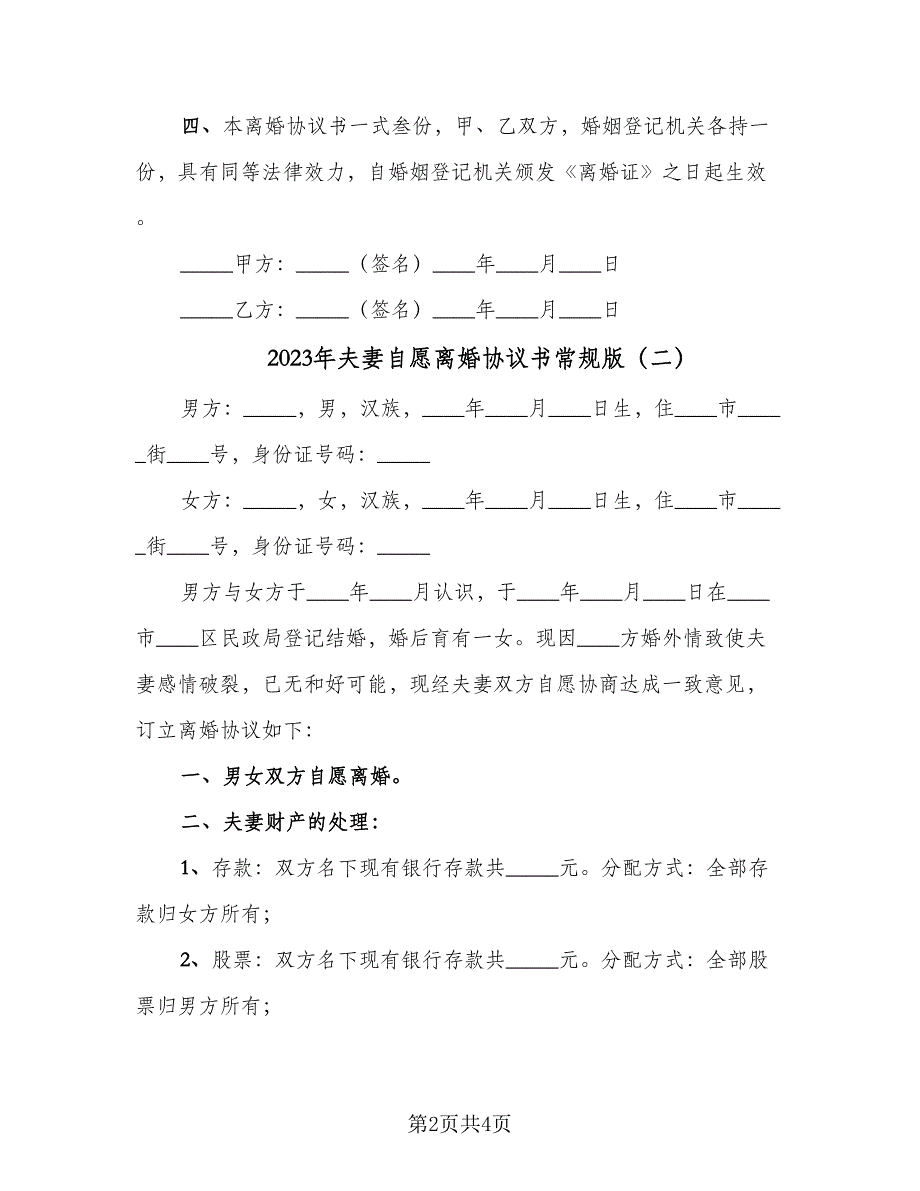 四、本离婚协议书一式叁份，甲、乙双方，婚姻登记机关各持一
份，具有同等法律效力，自婚姻登记机关颁发《离婚证》之日起生效
。
_____甲方：_____（签名）____年____月____日
_____乙方：_____（签名）____年____月____日
2023年夫妻自愿离婚协议书常规版（二）
男方：_____，男，汉族，____年____月____日生，住____市____
_街____号，身份证号码：_____
女方：_____，女，汉族，____年____月____日生，住____市____
_街____号，身份证号码：_____
男方与女方于____年____月认识，于____年____月____日在____
市____区民政局登记结婚，婚后育有一女。现因____方婚外情致使夫
妻感情破裂，已无和好可能，现经夫妻双方自愿协商达成一致意见，
订立离婚协议如下：
一、男女双方自愿离婚。
二、夫妻财产的处理：
1、存款：双方名下现有银行存款共_____元。分配方式：全部存
款归女方所有；
2、股票：双方名下现有银行存款共_____元。分配方式：全部股
票归男方所有；
第2页共4页